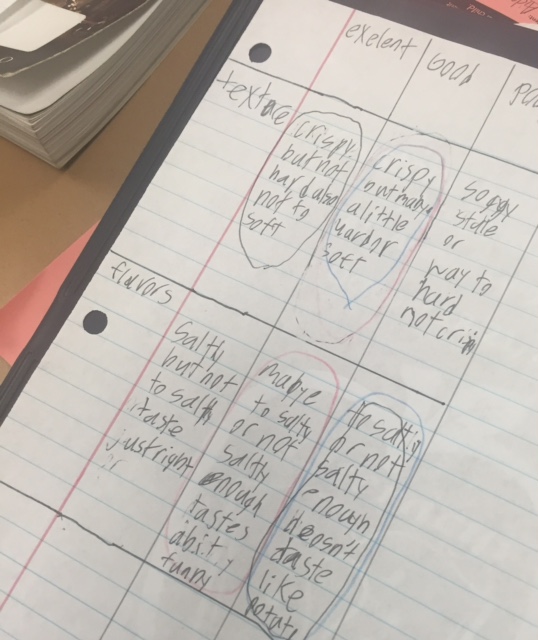 exelent
Good
texture
crispy
but not
hard also
not to
soft
crispy
but mabye
a little
hard or
soft
soggy
stale
or
way to
hard
not crisp
flavors
Salty
but not
to salty
taste
just right
mabye
to salty
or not
salty
enough
tastes
a bit
funny
to salty
or not
salty
enough
doesn't
taste
like
potato